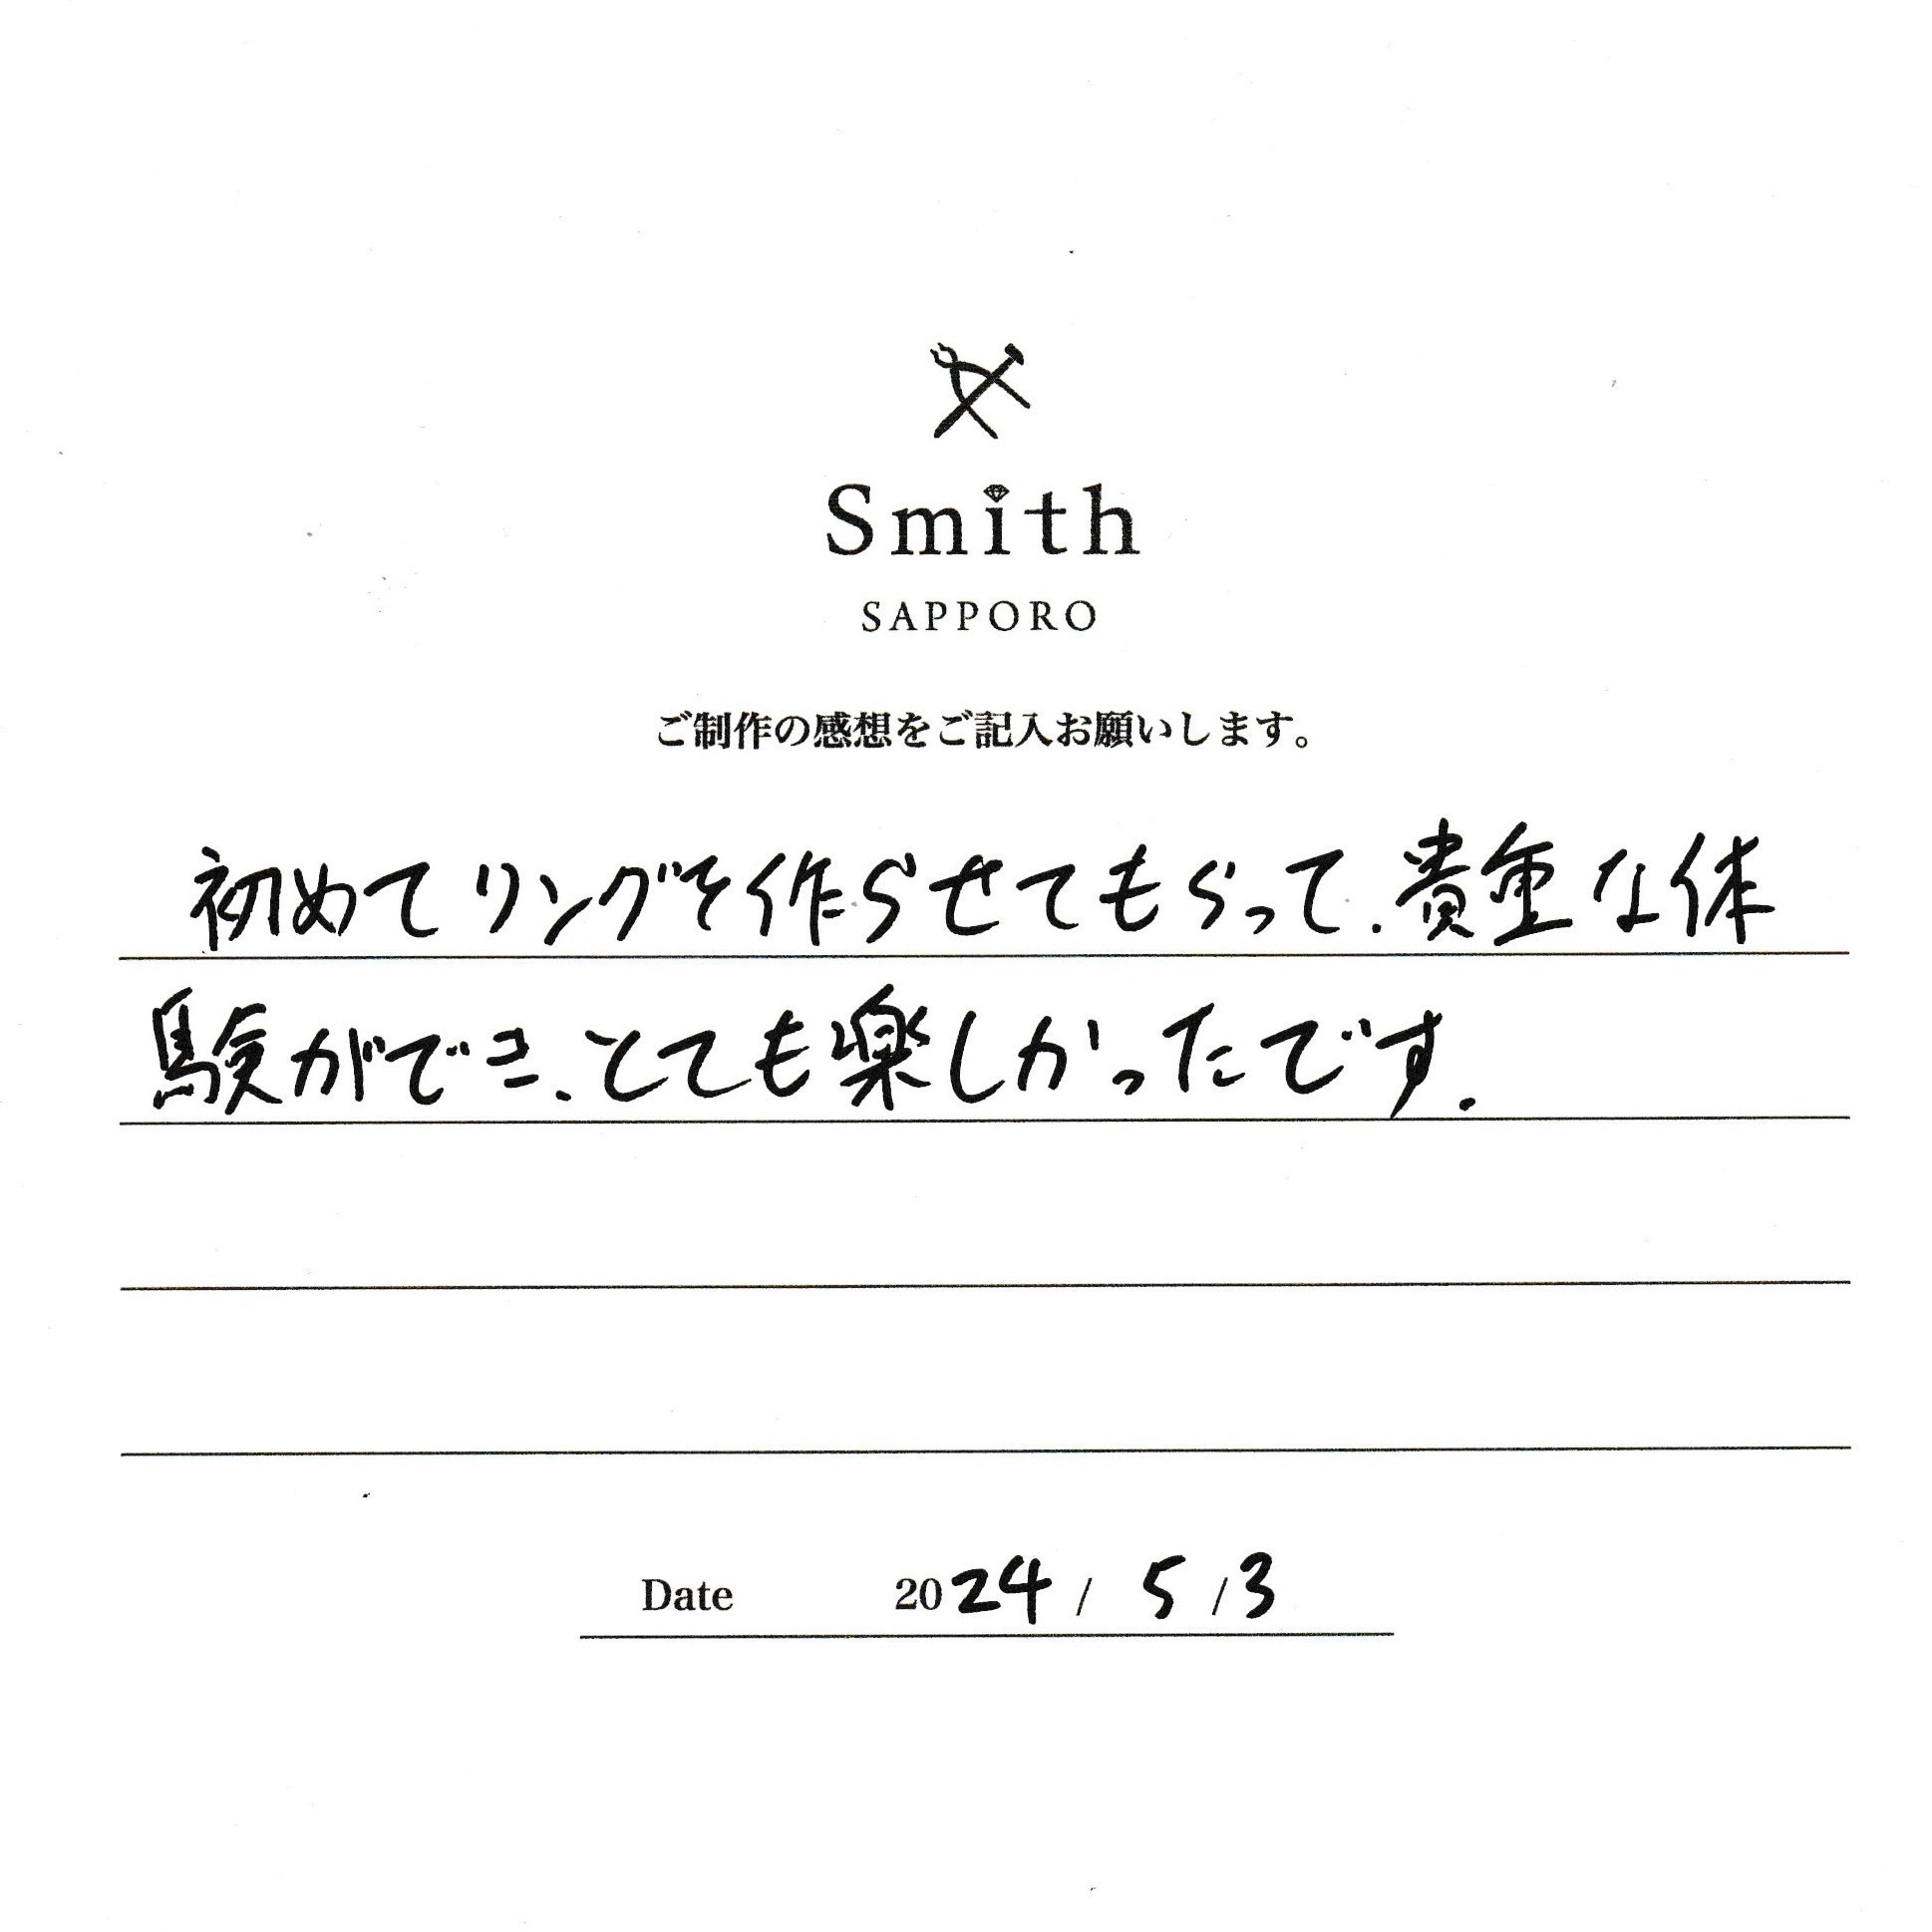 Smith
SAPPORO
ご制作の感想をご記入お願いします。
初めてリングを作らせてもらって、貴重な体
験ができ、とても楽しかったです。
Date 2024 / 5 / 3